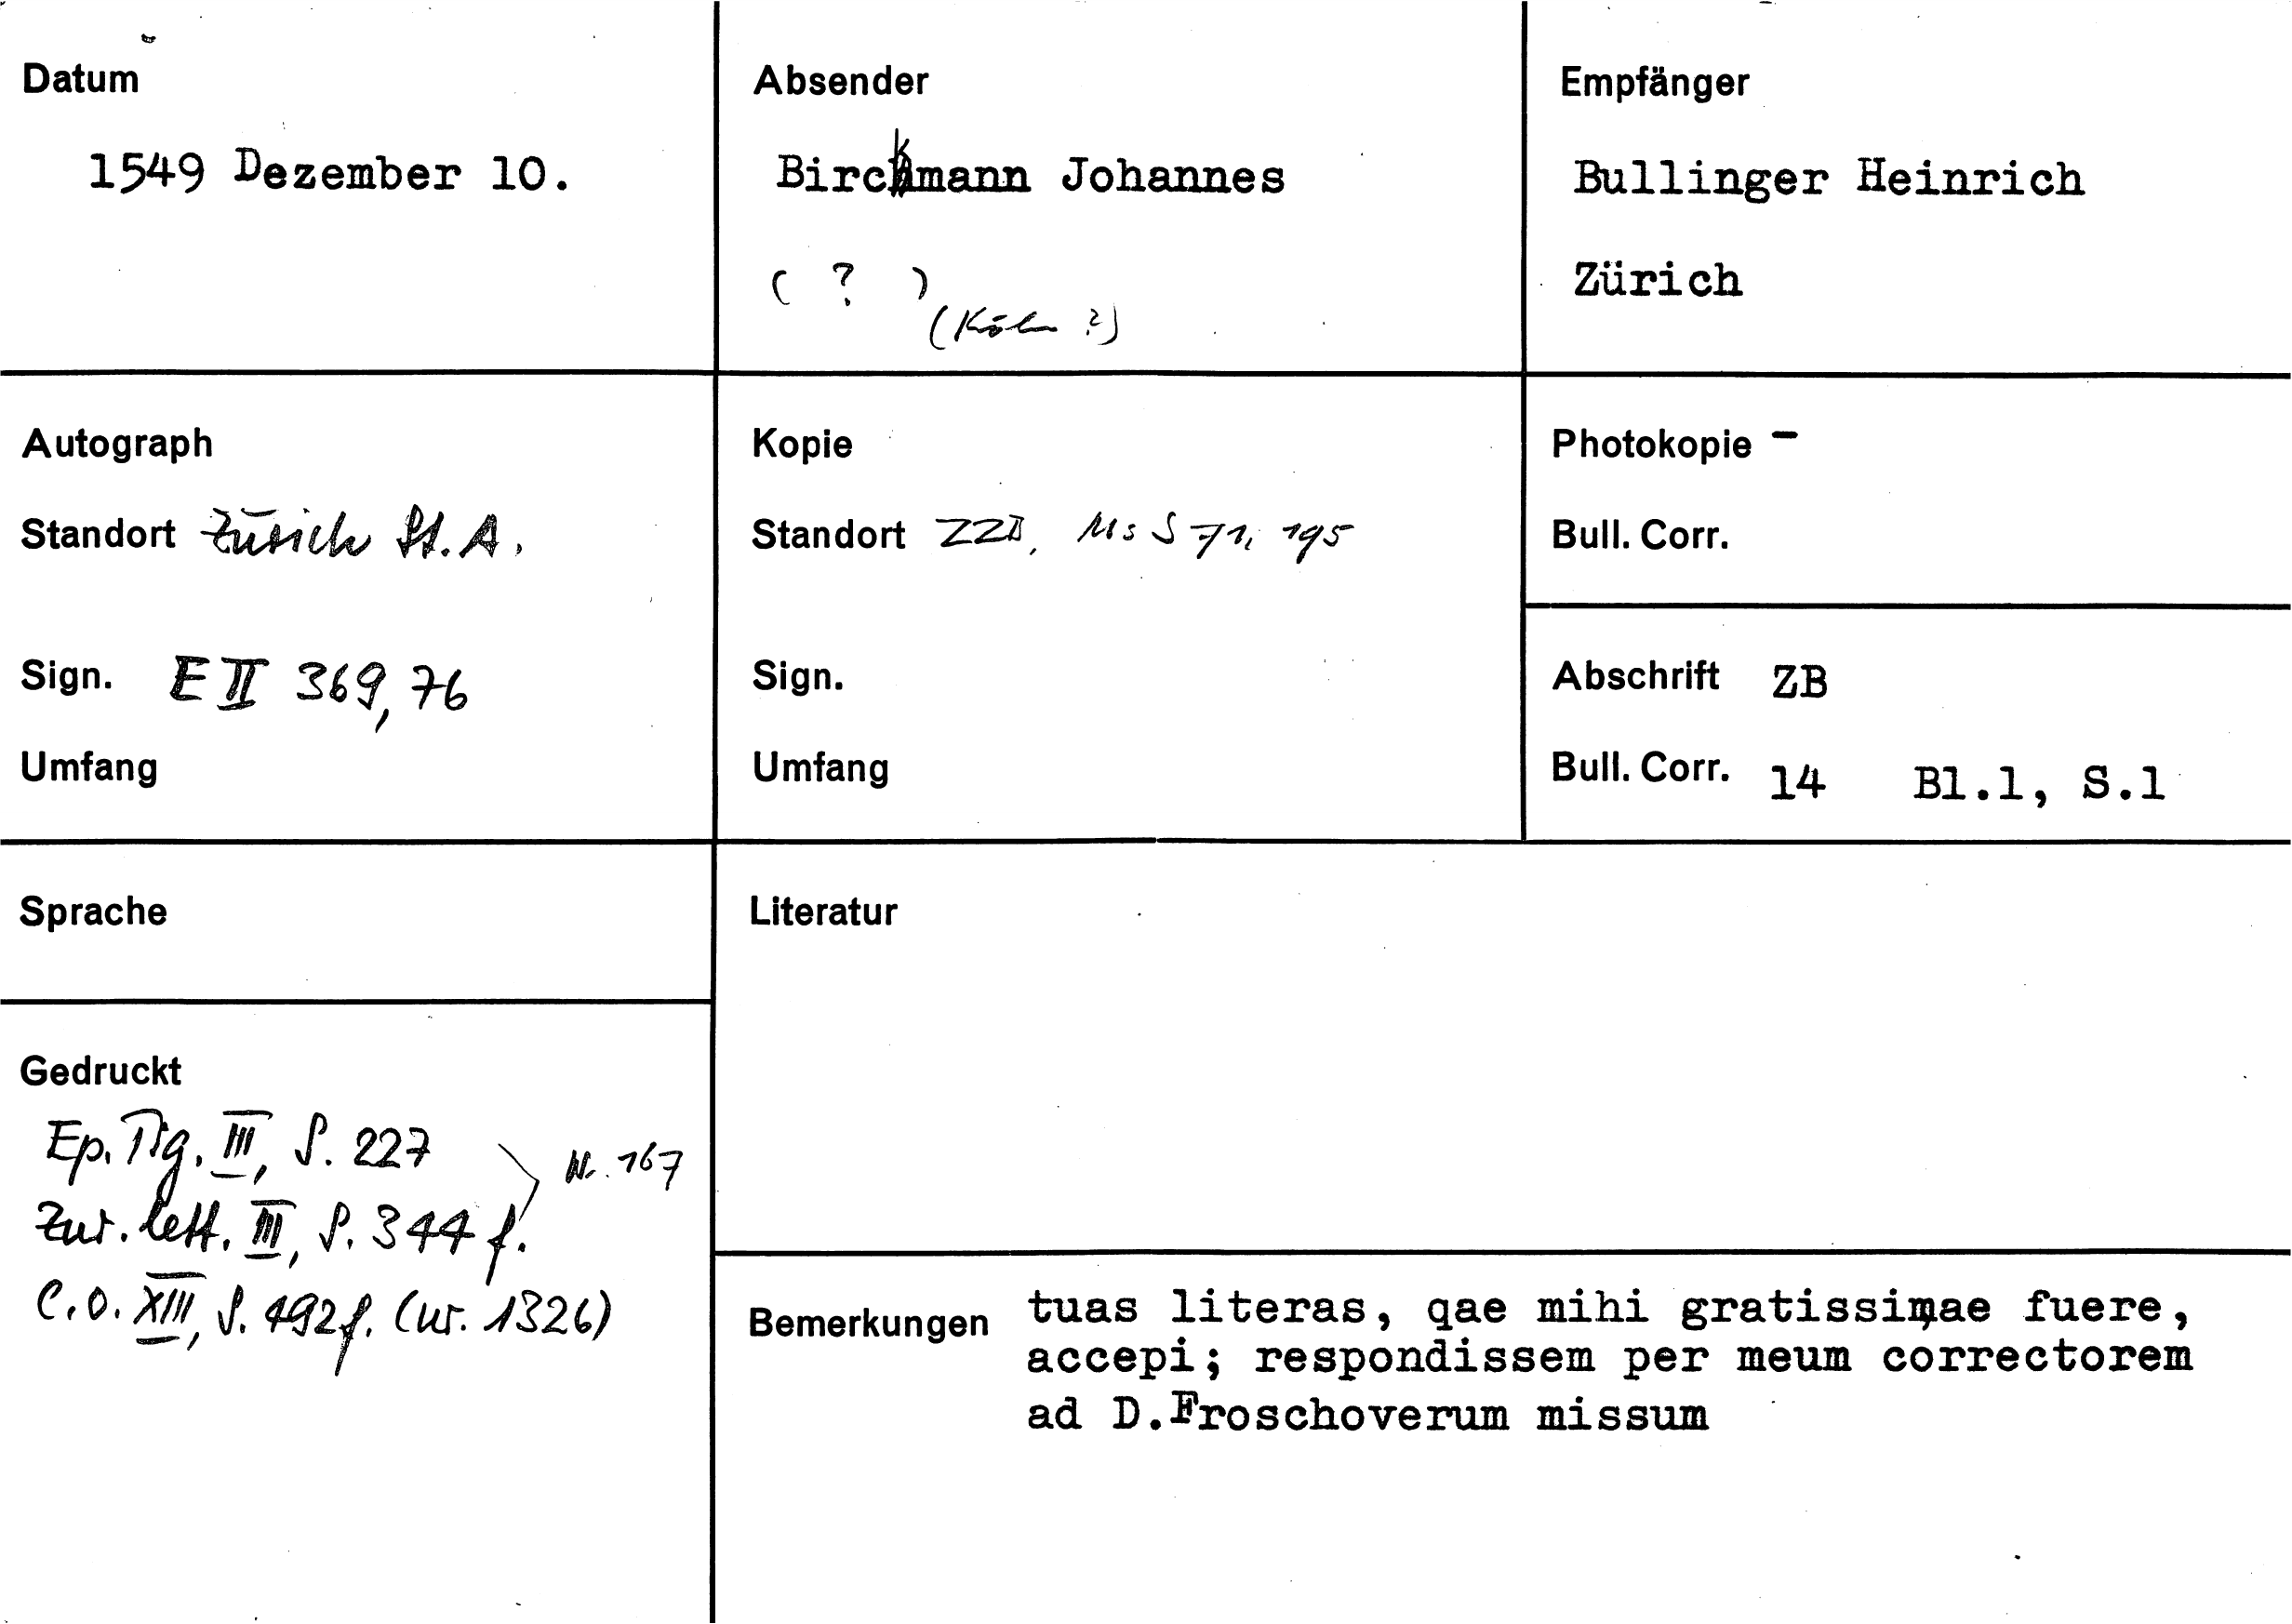 Datum
1549 Dezember 10.
Absender
Birckmann Johannes
( ? )
(Köln ?)
Empfänger
Bullinger Heinrich
Zürich
Autograph
Standort Zürich St. A.
Sign. E II 369, 76
Umfang
Kopie
Standort ZZB, Ms S 71, 195
Sign.
Umfang
Photokopie -
Bull. Corr.
Abschrift ZB
Bull. Corr. 14 Bl.1, S.1
Sprache
Gedruckt
Ep. Tig. III, S. 227
Zur. lett. III, S. 344 f.
Nr. 167
C.O. XIII, S. 492f. (nr. 1326)
Literatur
Bemerkungen
tuas literas, qae mihi gratissimae fuere,
accepi; respondissem per meum correctorem
ad D.Froschoverum missum